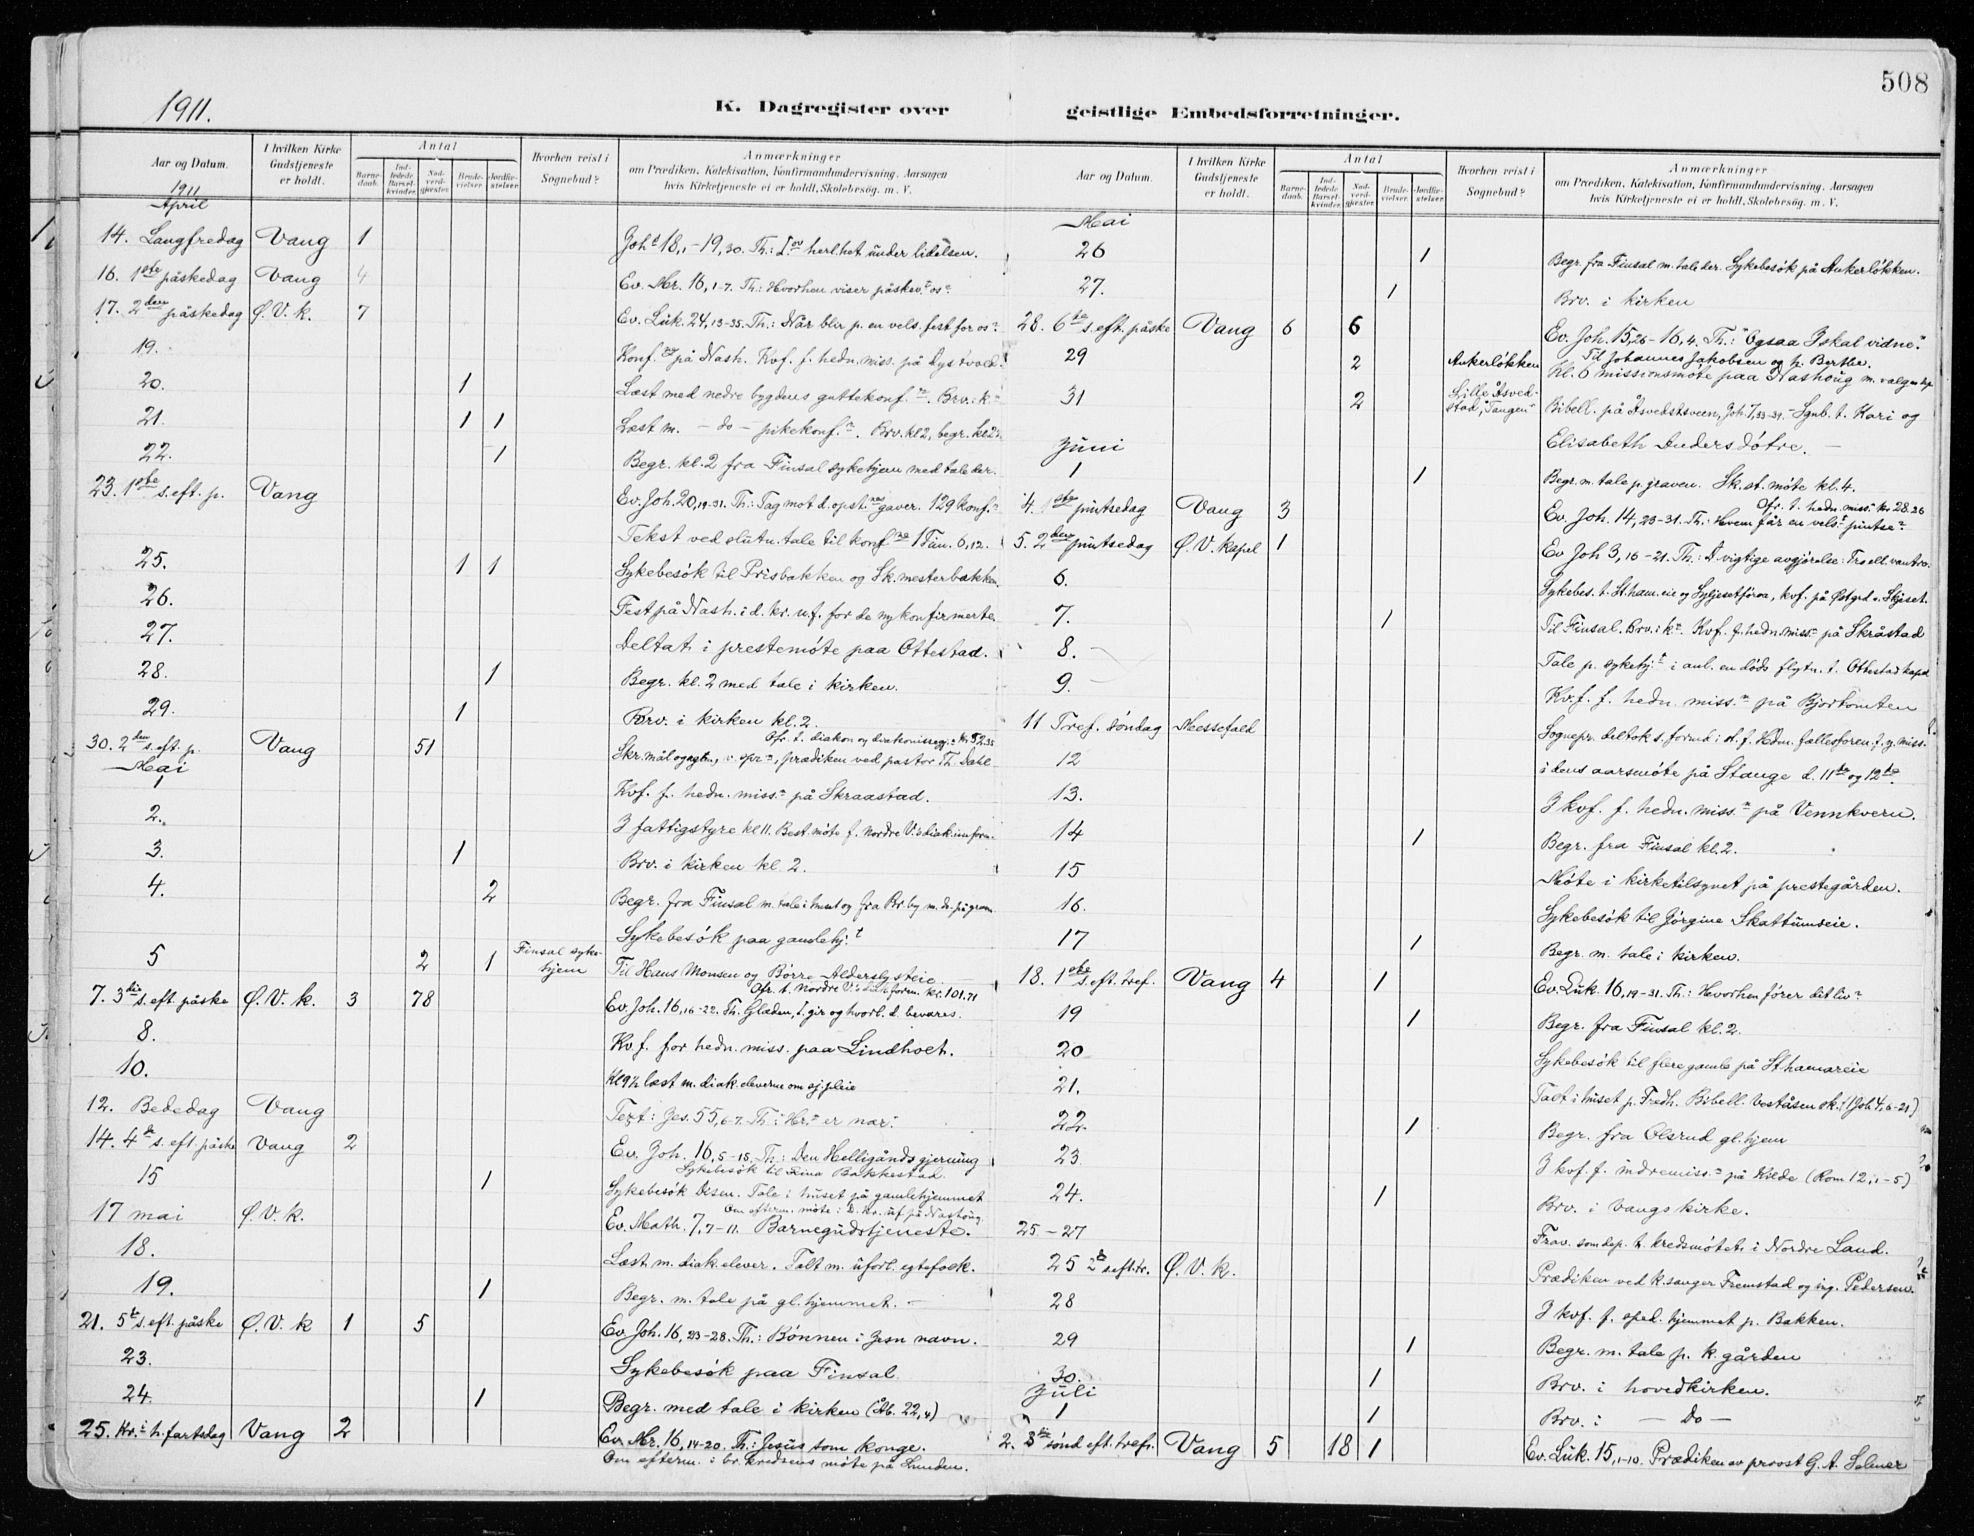 508
1911.
K. Dagregister over geistlige Embedsforretninger.
Aar og Datum.
I hvilken Kirke Gudstjeneste er holdt.
Antal
Barnedaab.
Indledede Barselkvinder.
Nadverdgjester.
Brudevielser.
Jordfæstelser.
Hvorhen reist i Sognebud?
Anmærkninger
om Prædiken, Katekisation, Konfirmandundervisning. Aarsagen
hvis Kirketjeneste ei er holdt, Skolebesøg. m. V.
1911
April
14. Langfredag Vang 1 Joh. 18,1-19,30. Th: herlhet under lidelsen.
16. 1ste påskedag Vang 4 Ev. Mr. 16,1-7. Th: Hvorhen viser påskev. os?
17. 2den påskedag Ø.V.k. 7 Ev. Luk. 24,13-35. Th: Når blir p. en vels. fest for os?
19. Konf. på Nash. Kvf. f. hedn. miss. på Lystvold.
20. 1 Læst med nedre bygdens guttekonf. Brv. i k.
21. 1 1 Læst m. - do - pikekonf. Brv. kl 2, begr. kl 2
22. 1 Begr. kl. 2 fra Finsal sykehjem med tale der.
23. 1ste s. eft. p. Vang Ev. Joh. 20,19-31. Th: Tag mot d. opst. gaver. 129 konf.
Tekst ved slutn. tale til konf. 1 Tim. 6,12.
25. 1 1 Sykebesøk til Prisbakken og Sk.mesterbakken.
26. Fest på Nash. i d. kr. u.f. for de nykonfirmerte.
27. Deltat i prestemøte paa Ottestad.
28. 1 Begr. kl. 2 med tale i kirken.
29. 1 Brv. i kirken kl. 2.
30. 2den s. eft. p. Vang 51 Ofr. t. diakon og diakonissegj. kr 52.35
Skr.mål og agtn., prædiken ved pastor Th. Dahl
Mai
1 Kvf. f. hedn. miss. på Skraastad.
2. I fattigstyre kl 11. Best. møte f. Nordre V.s diak.
3. 1 Brv. i kirken kl. 2.
4. 2 Begr. fra Finsal m. tale i huset og fra Br.by m. do. på grav.
Sykebesøk paa gamlehj.
5 2 1 Finsal sykehjem Til Hans Monsen og Børre Alderslysteie.
7. 3die s. eft. påske Ø.V.k. 3 78 Ofr. t. Nordre V.s diak.foren. kr. 101.71
Ev. Joh. 16,16-22. Th. Glæden, J. gir og hvorl. d. bevares.
8. Kvf. for hedn. miss. paa Lindholt.
10. Kl 9½ læst m. diak.eleverne om sj.pleie
12. Bededag Vang Text: Jes. 55,6-7. Th: Hr. er nær.
14. 4de s. eft. påske Vang 2 Ev. Joh. 16,5-15. Th: Den Helligånds gjerning
15 1 Sykebesøk til Lina Bakkestad.
Sykebesøk Disen. Tale i huset på gamlehjemmet
17 mai Ø.V.k. Om efterm. møte i d. kr. uf på Nashoug.
Ev. Math. 7,7-11. Barnegudstjeneste.
18. Læst m. diak.elever. Talt m. uforl. egtefolk.
19. 1 Begr. m. tale på gl.hjemmet. -
21. 5te s. eft. påske Ø.V.k 1 5 Ev. Joh. 16,23-28. Th: Bønnen i Jesu navn.
23. Sykebesøk paa Finsal
24. 1 Begr. med tale i kirken (Åb. 22,4)
25. Kr. h.fartsdag Vang 2 Ev. Mr. 16,14-20. Th: Jesus som konge.
Om efterm. i br.kredsens møte på Lunden.
Aar og Datum.
I hvilken Kirke Gudstjeneste er holdt.
Antal
Barnedaab.
Indledede Barselkvinder.
Nadverdgjester.
Brudevielser.
Jordfæstelser.
Hvorhen reist i Sognebud?
Anmærkninger
om Prædiken, Katekisation, Konfirmandundervisning. Aarsagen
hvis Kirketjeneste ei er holdt, Skolebesøg. m. V.
Mai
26 1 Begr. fra Finsal m. tale der. Sykebesøk på Ankerløkken.
27. 1 Brv. i kirken
28. 6te s. eft. påske Vang 6 6 Ev. Joh. 15,26-16,4. Th: "Ogsaa I skal vidne."
29 2 Ankerløkken Til Johannes Jakobsen og h. Berthe.
Kl. 6 missionsmøte paa Nashoug m. valg
31 2 Lille Åsvedstad, "Tangen" Bibell. på Åsvedstsveen, Joh 7,33-39. - Sgnb. t. Kari og
Elisabeth Andersdøtre. -
Juni
1 1 Begr. m. tale p. graven. Sk.st. møte kl. 4.
4. 1ste pintsedag Vang 3 Ofr. t. hedn. miss. kr 28.26
Ev. Joh. 14,23-31. Th: Hvem får en vels. pintse?
5. 2den pintsedag Ø.V.kapel 1 Ev Joh 3,16-21. Th: D vigtige avgjørelse: Tro ell. vantro.
6. Sykebes. t. St.ham.eie og Lyljesetføroa, kvf. på Østgrd. v. Skjeset.
7. 1 Til Finsal. Brv. i k. Kvf. f. hedn. miss. på Skråstad
8. - Tale p. sykehj. i anl. en døds flytn. t. Ottestad kapel
9. - Kvf. f. hedn. miss. på Bjortomten
11 Tref. søndag Messefald Sognepr. deltok s. formd. i d. f. Hdm. fællesforen. f. y. miss.
12 i dens aarsmøte på Stange d. 11te og 12te.
13. I kvf. f. hedn. miss. på Vennkvern.
14 1 Begr. fra Finsal kl. 2.
15 Møte i kirketilsynet på prestegården.
16. Sykebesøk til Jørgine Skattumseie.
17 1 Begr. m. tale i kirken.
18. 1ste s. eft. tref. Vang 4 1 Ev. Luk. 16,19-31. Th: Hvorhen fører dit liv?
19 1 Begr. fra Finsal kl. 2
20 Sykebesøk til flere gamle på St.hamareie
21. Talt i huset p. Fredh. Bibell. Veståsen sk. (1 Joh. 4,6-21)
22. 1 Begr. fra Olsrud gl.hjem
23 I kvf. f. indremiss. på Kilde (Rom 12,1-5)
24. 1 Brv. i Vangs kirke.
25-27 Frav. som dep. t. kredsmøtet i Nordre Land.
25 2d s. eft. tr. Ø.V.k. Prædiken ved k.sanger Fremstad og ing. Pedersen.
28 I kvf. f. sped. hjemmet p. Bakken.
29 1 Begr. m. tale p. k.gården
30. 1 Brv. i hovedkirken.
Juli
1 1 Brv. i - Do -
2. 3die sønd. eft. tref. Vang 5 18 1 Ev. Luk. 15,1-10. Prædiken av provst G. A. Selmer